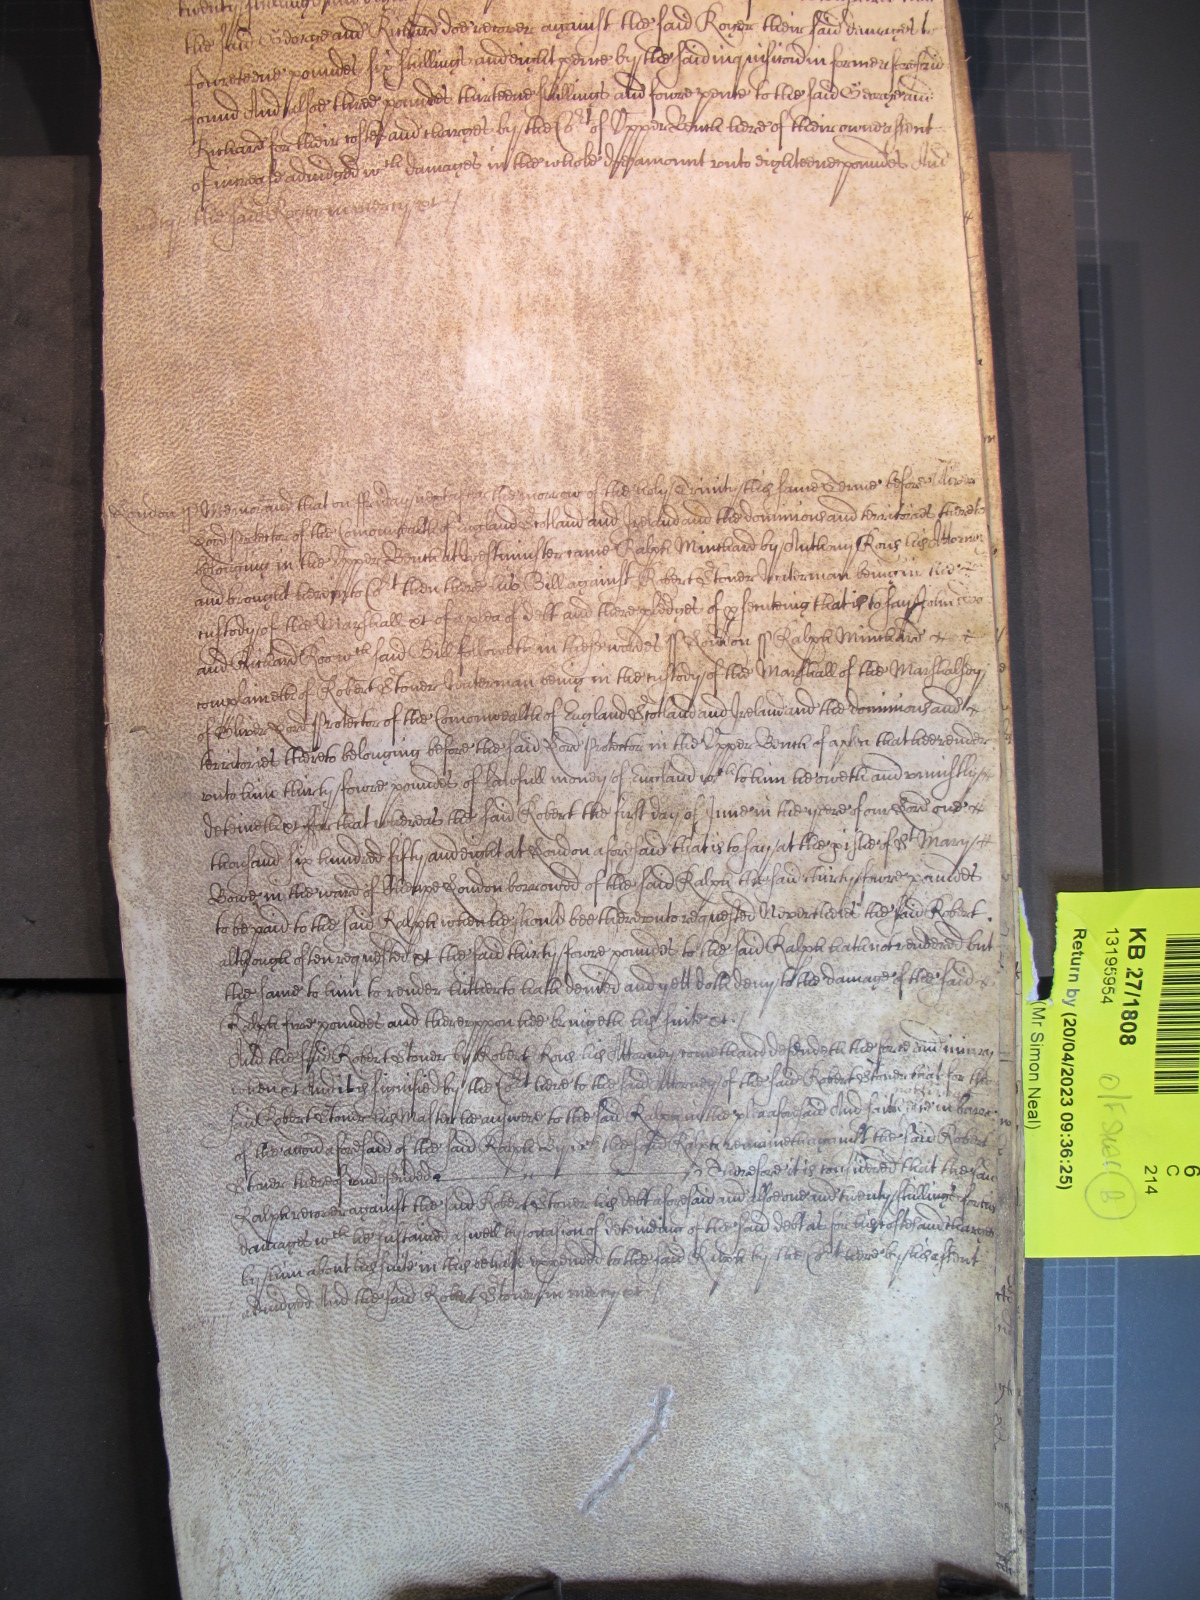 twenty shillings
the said George and Richard doe recover against the said Roger their said damages to
fourteene poundes six shillings and eight pence by the said inquisicon in forme aforesaid
found And alsoe three poundes thirteene shillings and foure pence to the said George and
Richard for their costes and charges by the Cort of Upper Bench here of their owne assent
of increase adiudged wch damages in the whole doe amount unto eighteene poundes And
the said Roger in mercy &c
London ss Memorand that on ffriday next after the morrow of the holy Trinity this same Terme before Oliver
Lord Protector of the Comonwealth of England Scotland and Ireland and the dominions and territories thereto
belonging in the Upper Bench at Westminster came Ralph Minchard by Anthony Rous his Attorney
and brought here into Cort then there his Bill against Robert Stoner Waterman being in the
custody of the Marshall &c of a plea of debt and there pledges of psecuting that is to say John Doo
and Richard Roo wch said Bill followeth in these wordes ss London ss Ralph Minchard
complaineth of Robert Stoner Waterman being in the custody of the Marshall of the Marshalsey
of Oliver Lord Protector of the Comonwealth of England Scotland and Ireland and the dominions and
territories thereto belonging before the said Lord Protector in the Upper Bench of a plea that hee render
unto him thirty foure poundes of lawfull money of England wch to him he oweth and uniustly
deteineth &c For that whereas the said Robert the first day of June in the yeere of our Lord one
thousand six hundred fifty and eight at London aforesaid that is to say at the pishe of St Mary
Bowe in the ward of Cheape London borrowed of the said Ralph the said thirty foure poundes
to be paid to the said Ralph when he should bee thereunto requested Neverthelesse the said Robert
although often requested &c the said thirty foure poundes to the said Ralph hath not rendered but
the same to him to render hitherto hath denied and yett doth deny to the damage of the said
Ralph five poundes and thereuppon hee bringeth his suite &c.
And the said Robert Stoner by Robert Rous his Attorney cometh and defendeth the force and iniury
when &c And it is signified by the Cort here to the said Attorney of the said Robert Stoner that for the
said Robert Stoner his Master he answere to the said Ralph in the plea aforesaid And saith in barre
of the accon aforesaid of the said Ralph By wch the said Ralph remaineth against the said Robert
Stoner thereof undefended Therefore it is considered that the said
Ralph recover against the said Robert Stoner his debt aforesaid and alsoe one and twenty shillings for his
damages wch he sustained aswell by occasion of deteineing of the said debt as for his costes and charges
by him about his suite in this behalfe expended to the said Ralph by the Cort here by his assent
adiudged And the said Robert Stoner in mercy &c
KB 27/1808
13195954
Return by (20/04/2023 09:36:25)
(Mr Simon Neal)
6
C
214